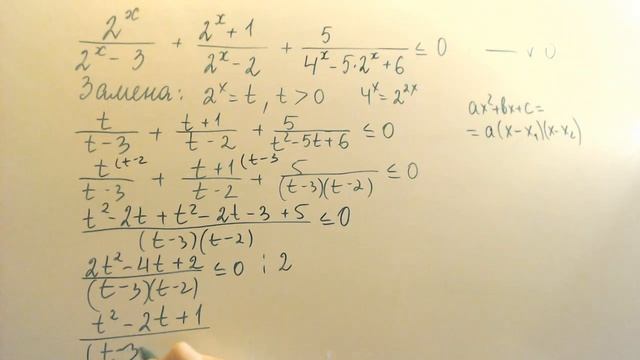 2^x/(2^x - 3) + (2^x + 1)/(2^x - 2) + 5/(4^x - 5·2^x + 6) ≤ 0 — v 0
Замена: 2^x = t, t > 0 4^x = 2^2x
ax² + bx + c =
= a(x - x₁)(x - x₂)
t/(t - 3) + (t + 1)/(t - 2) + 5/(t² - 5t + 6) ≤ 0
t(t - 2/(t - 3) + (t + 1(t - 3/(t - 2) + 5/((t - 3)(t - 2)) ≤ 0
(t² - 2t + t² - 2t - 3 + 5)/((t - 3)(t - 2)) ≤ 0
(2t² - 4t + 2)/((t - 3)(t - 2)) ≤ 0 : 2
(t² - 2t + 1)/(t - 3